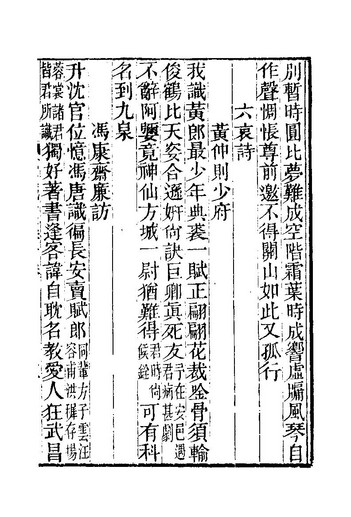 別暫時圓比夢難成空階霜葉時成響虛牖風琴自
作聲惆悵尊前邀不得關山如此又孤行
六哀詩
黃仲則少府
我識黃郎最少年典裘一賦正翩翩花裁唅骨須輸
俊鶴比天姿合遜妍向訣巨卿真死友子在安邑過君病甚劇
不辭阿鼹竟神仙方城一尉猶難得君時尙候銓可有科
名到九泉
馮康齋廉訪
升沈官位憶馮唐識徧長安賣賦郎同輩方子雲汪容甫洪穉存楊
蓉裳諸君皆君所識獨好著書逢客諱自耽名教愛人狂武昌